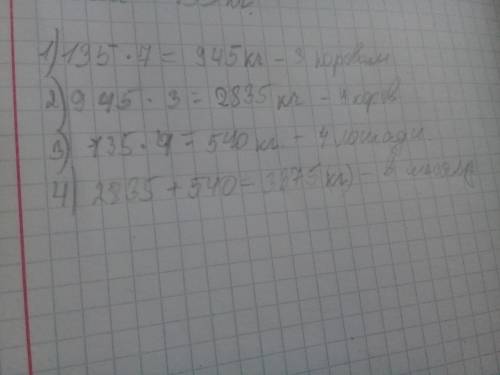 1) 135 · 7 = 945 кг - 3
2) 945 · 3 = 2835 кг - 7 коров
3) 135 · 4 = 540 кг - 4 лошади
4) 2835 + 540 = 3375 (кг) - в